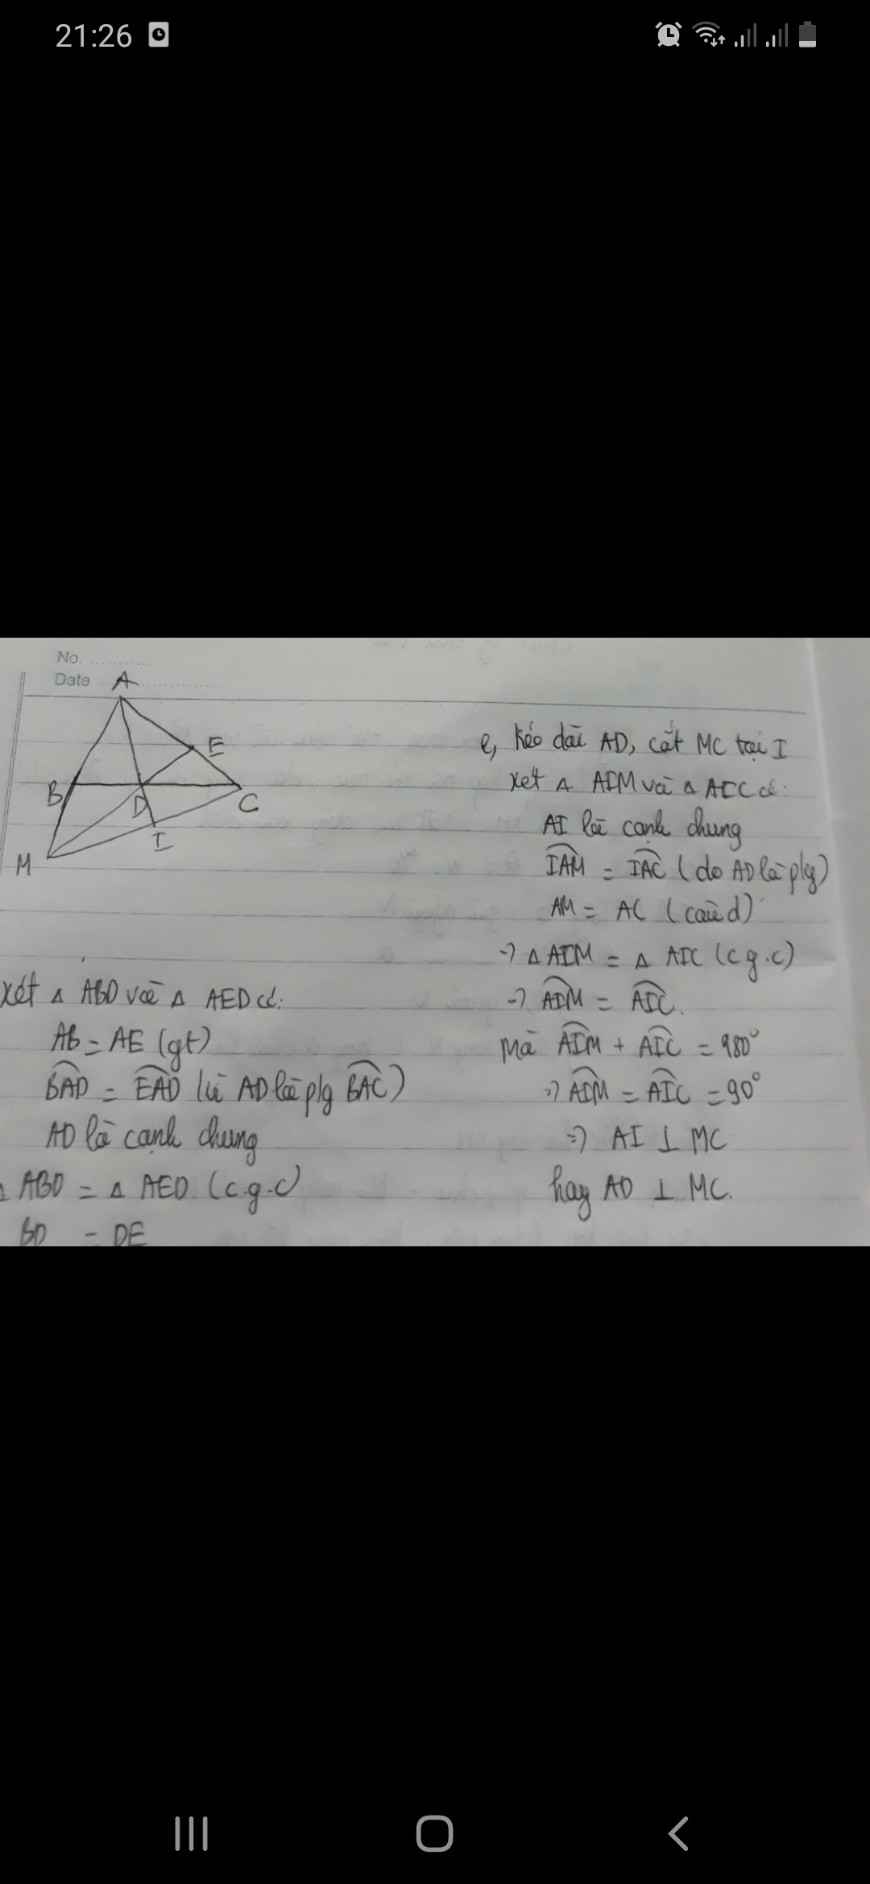 21:26
No.
Date
A
E
B
D
C
I
M
xét △ ABD và △ AED có:
AB = AE (gt)
BAD = EAD (vì AD là p/g BAC)
AD là cạnh chung
△ ABD = △ AED (c.g.c)
BD = DE
e, Kéo dài AD, cắt MC tại I
xét △ AIM và △ AIC có:
AI là cạnh chung
IAM = IAC (do AD là p/g)
AM = AC (câu d)
-> △ AIM = △ AIC (c g.c)
-> AIM = AIC.
Mà AIM + AIC = 180°
=> AIM = AIC = 90°
=> AI ⊥ MC
hay AD ⊥ MC.